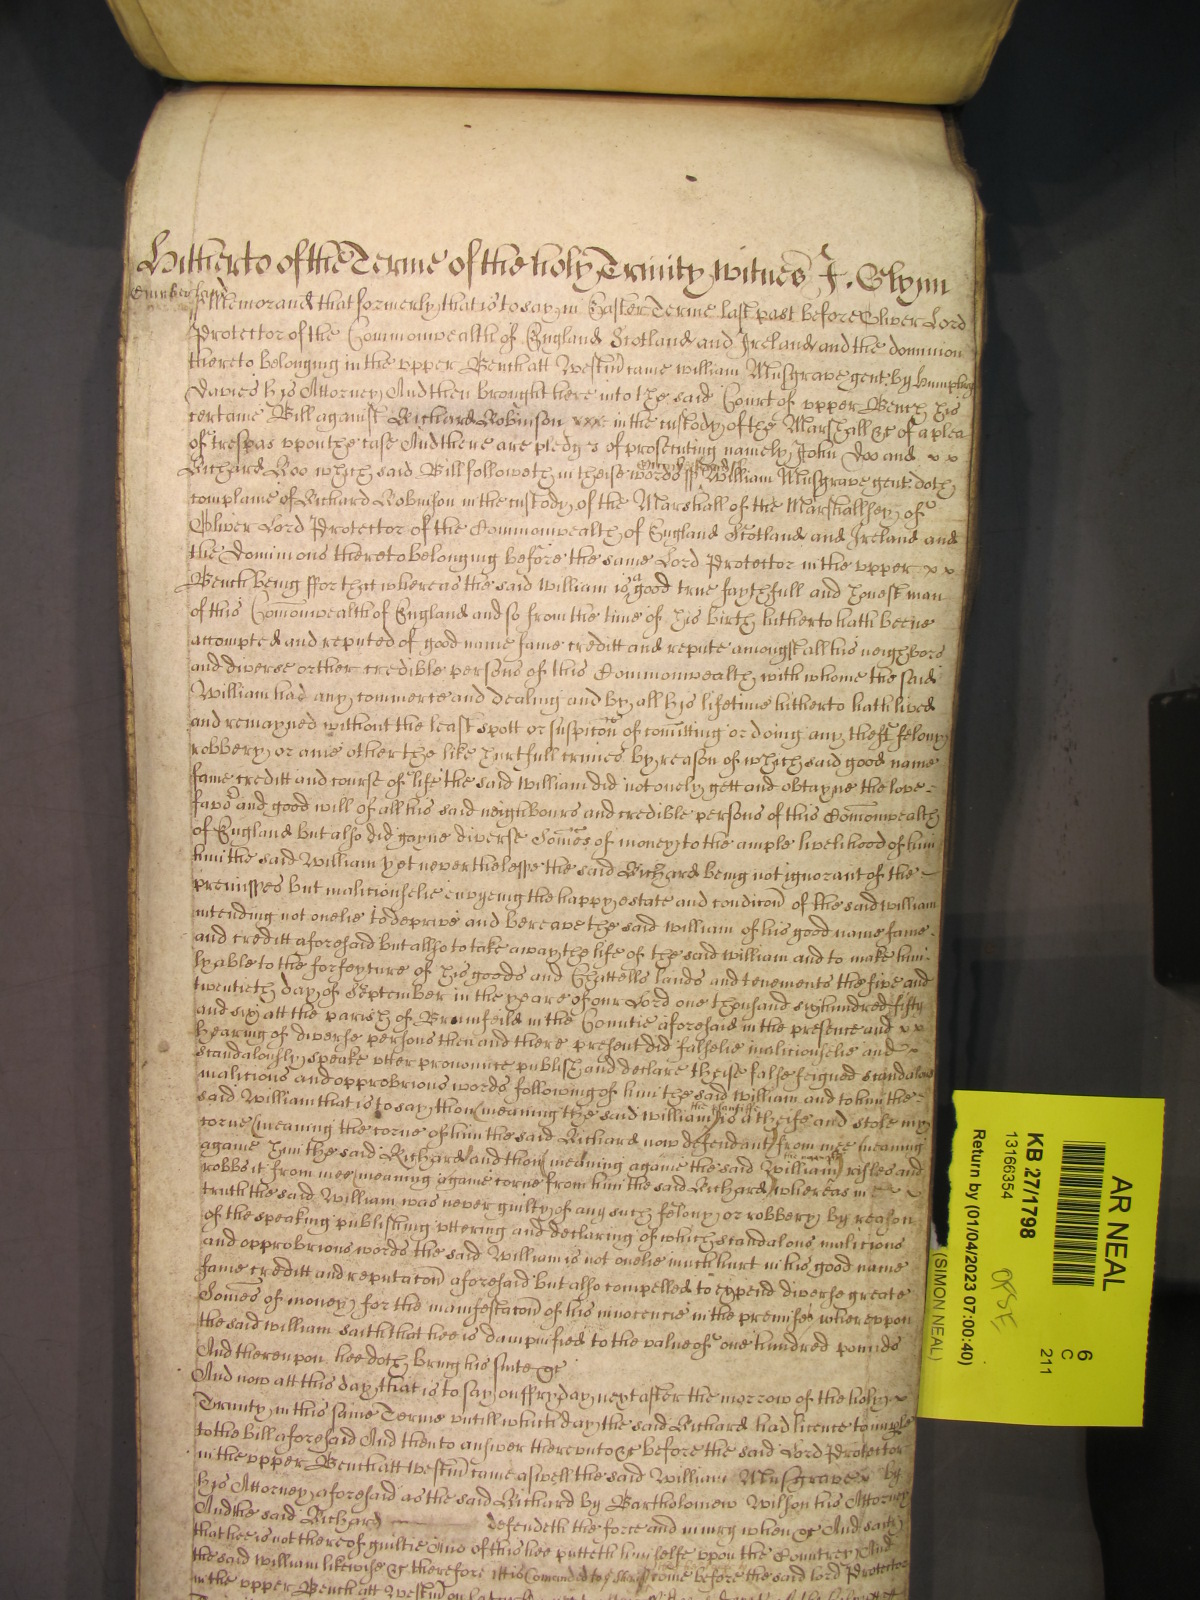 Hitherto of the Terme of the holy Trinity witnes J. Glynn
Memorand that formerly that is to say in Easter Terme last past before Oliver Lord
Protector of the Commonwealth of England Scotland and Ireland and the dominions
thereto belonging in the upper Bench att Westmr came William Musgrave gent by Humphry
Davies his Attorney And then brought here into the said Court of upper Bench his
certaine Bill against Richard Robinson in the custody of the Marshall &c of a plea
of trespas upon the case And there are pledges of prosecuting namely John Doo and
Richard Roo which said Bill followeth in theise words ss William Musgrave gent doth
complaine of Richard Robinson in the custody of the Marshall of the Marshallsey of
Oliver Lord Protector of the Commonwealth of England Scotland and Ireland and
the Dominions thereto belonging before the same Lord Protector in the upper
Bench being ffor that whereas the said William is a good true faythfull and honest man
of this Commonwealth of England and so from the time of his birth hitherto hath beene
accompted and reputed of good name fame creditt and repute amongst all his neighbors
and diverse other credible persons of this Commonwealth with whome the said
William had any commerce and dealing and by all his lifetime hitherto hath lived
and remayned without the least spott or suspicon of comitting or doing any theft felony
robbery or anie other the like hurtfull crimes by reason of which said good name
fame creditt and course of life the said William did not onely gett and obtayne the love
favor and good will of all his said neighbours and credible persons of this Comonwealth
of England but also did gayne diverse Somes of money to the ample livelihood of him
him the said William yet neverthelesse the said Richard being not ignorant of the
premisses but maliciouslie envyeing the happy estate and condicon of the said William
intending not onelie to deprive and bereave the said William of his good name fame
and creditt aforesaid but allso to take away the life of the said William and to make him
lyable to the forfeyture of his goods and Chattells lands and tenements the five and
twentieth day of September in the yeare of our Lord one thousand six hundred fifty
and six att the parish of Brumfeild in the Countie aforesaid in the presence and
hearing of diverse persons then and there present did falselie maliciouslie and
scandalously speake utter pronounce publish and declare theise false feigned scandalous
malicious and opprobrious words following of him the said William and to him the
said William that is to say thou (meaning the said William the plaintiffe) is a theife and stole my
corne (meaning the corne of him the said Richard now defendant) from mee (meaning
againe him the said Richard) and thou (meaning againe the said William) rifles and
robbs it from mee (meaning againe corne from him the said Richard) whereas in
truth the said William was never guilty of any such felony or robbery by reason
of the speaking publishing uttering and declaring of which scandalous malicious
and opprobrious words the said William is not onelie much hurt in his good name
fame creditt and reputacon aforesaid but also compelled to expend diverse greate
Somes of money for the manifestacon of his innocencie in the premises whereupon
the said William saith that hee is dampnified to the value of one hundred pounds
And thereupon hee doth bring his suite &c
And now att this day that is to say on ffryday next after the morrow of the holy
Trinity in this same Terme untill which day the said Richard had licence to imparle
to the bill aforesaid And then to answer thereunto &c before the said Lord Protector
in the upper Bench att Westmr came aswell the said William Musgrave by
his Attorney aforesaid as the said Richard by Bartholomew Wilson his Attorney
And the said Richard defendeth the force and iniury when &c And saith
that hee is not thereof guiltie And of this hee putteth himselfe upon the Countrey And
the said William likewise &c therefore itt is Comanded come before the said lord Protector
in the upper Bench att Westmr on
AR NEAL
KB 27/1798
13166354
Return by (01/04/2023 07:00:40)
(SIMON NEAL)
6
C
211